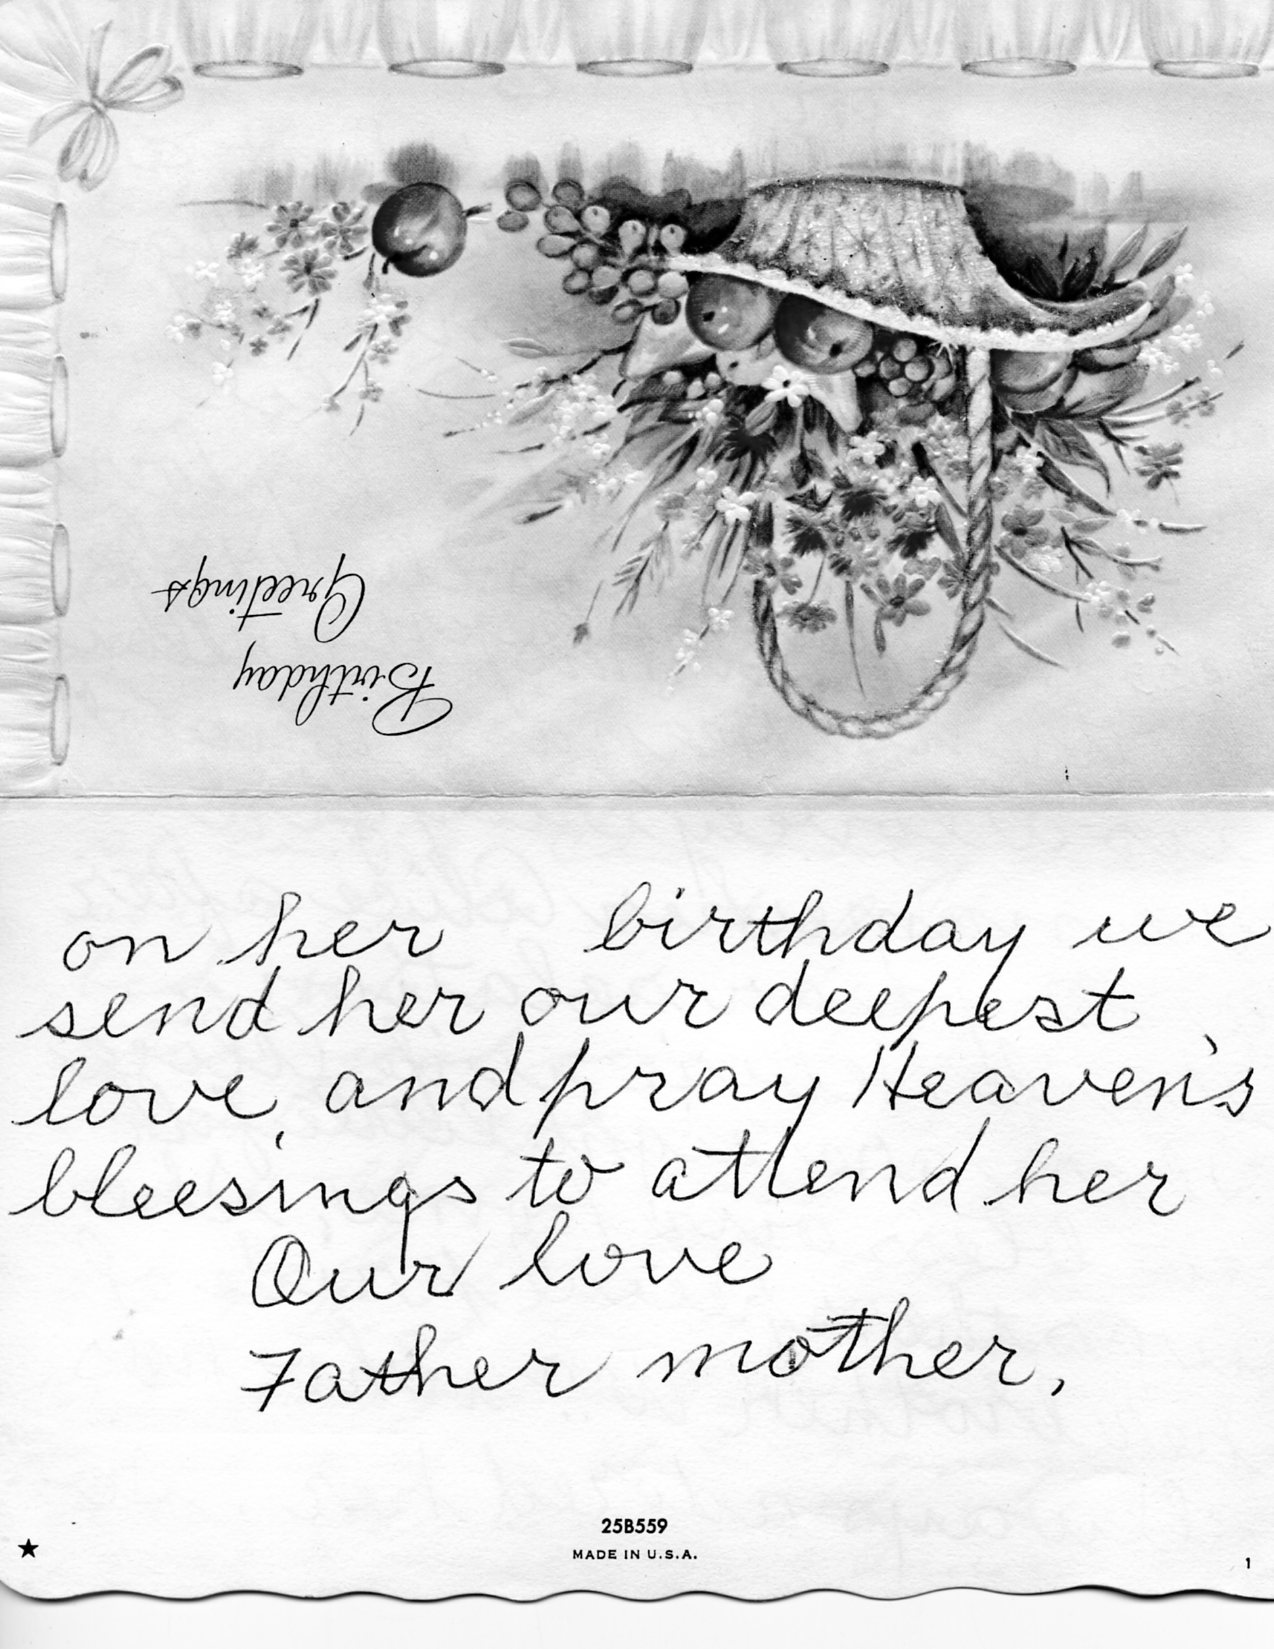 Birthday
Greetings
on her birthday we
send her our deepest
love, and pray Heaven's
bleesings to attend her
Our love
Father mother,
25B559
MADE IN U.S.A.
★
1